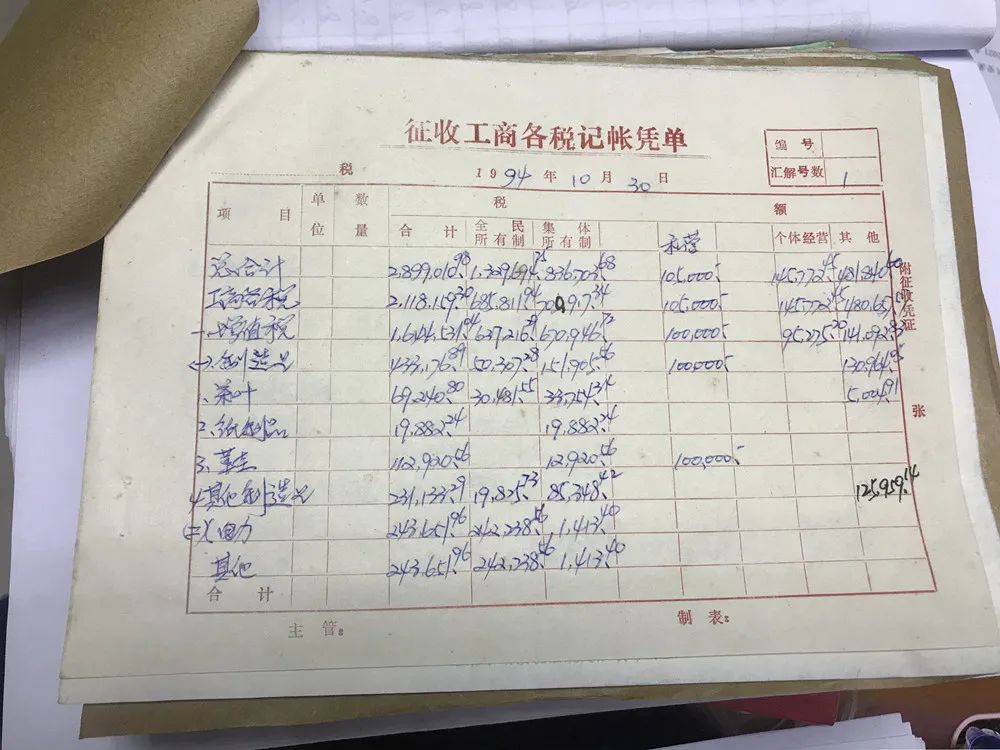 征收工商各税记帐凭单
编 号
汇解号数 1
税 1994 年 10 月 30 日
项 目 单位 数量 税 额
合 计 全民所有制 集体所有制 私营 个体经营 其他
总合计 2,899,010.98 1,329,694.75 836,703.68 105,000.- 145,772.45 481,840.10
工商各税 2,118,159.30 685,811.94 700,917.34 105,000.- 145,772.45 480,657.57
一、增值税 1,644,531.04 637,216.29 670,946.72 100,000.- 95,275.20 141,092.83
(一)、制造品 433,176.89 50,307.28 151,905.56 100,000.- 130,964.05
1、茶叶 69,240.80 30,481.55 33,754.34 5,004.91
2、纸制品 19,882.24 19,882.24
3、 112,920.56 12,920.56 100,000.-
4、其他制造品 231,133.29 19,825.73 85,348.42 125,959.14
(二)、电力 243,651.96 242,238.56 1,413.40
其他 243,651.96 242,238.56 1,413.40
合 计
主 管： 制 表：
附征收凭证 张